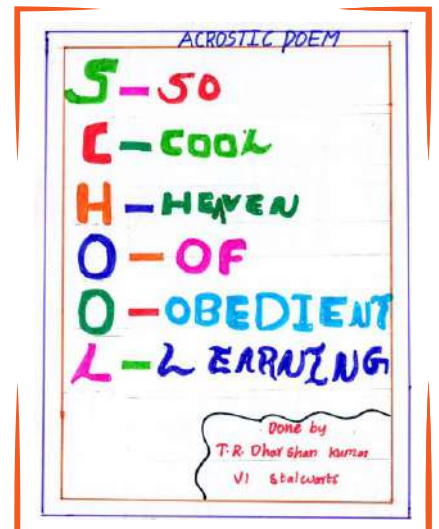 ACROSTIC POEM
S - SO
C - COOL
H - HEAVEN
O - OF
O - OBEDIENT
L - LEARNING
Done by
T.R. Dharshan Kumar
VI Stalwarts